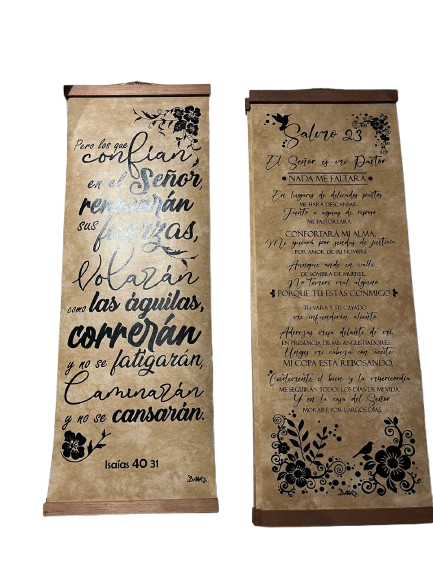 Pero los que
confían,
en el Señor,
renovarán
sus fuerzas,
Volarán
como las águilas,
correrán
y no se fatigarán,
Caminarán
y no se cansarán.
Isaías 40 31
Salmo 23
El Señor es mi Pastor
NADA ME FALTARA
En lugares de delicados pastos
ME HARA DESCANSAR
Junto a aguas de reposo
ME PASTOREARA
CONFORTARA MI ALMA,
Me guiará por sendas de justicia
POR AMOR DE SU NOMBRE
Aunque ande en valle
DE SOMBRA DE MUERTE,
No Temeré mal alguno
PORQUE TU ESTAS CONMIGO
TU VARA Y SU CAYADO
me infundirán aliento
Aderezas mesa delante de mi,
EN PRESENCIA DE MIS ANGUSTIADORES.
Unges mi cabeza con aceite
MI COPA ESTA REBOSANDO
Ciertamente el bien y la misericordia
ME SEGUIRAN TODOS LOS DIAS DE MI VIDA
Y en la casa del Señor
MORARE POR LARGOS DIAS